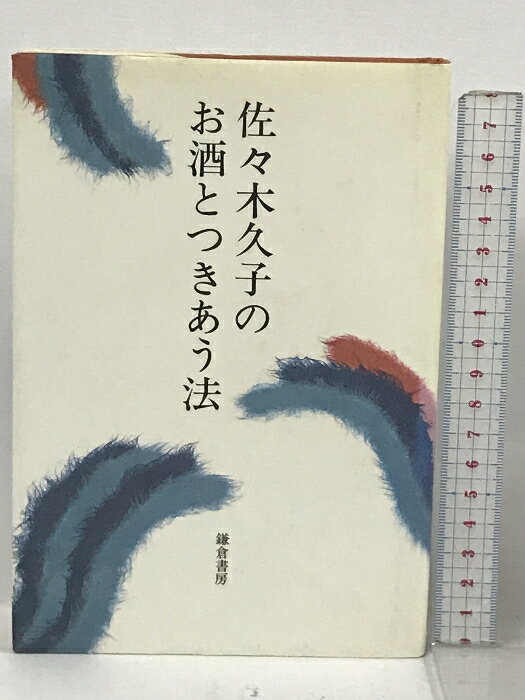 佐々木久子の
お酒とつきあう法
鎌倉書房